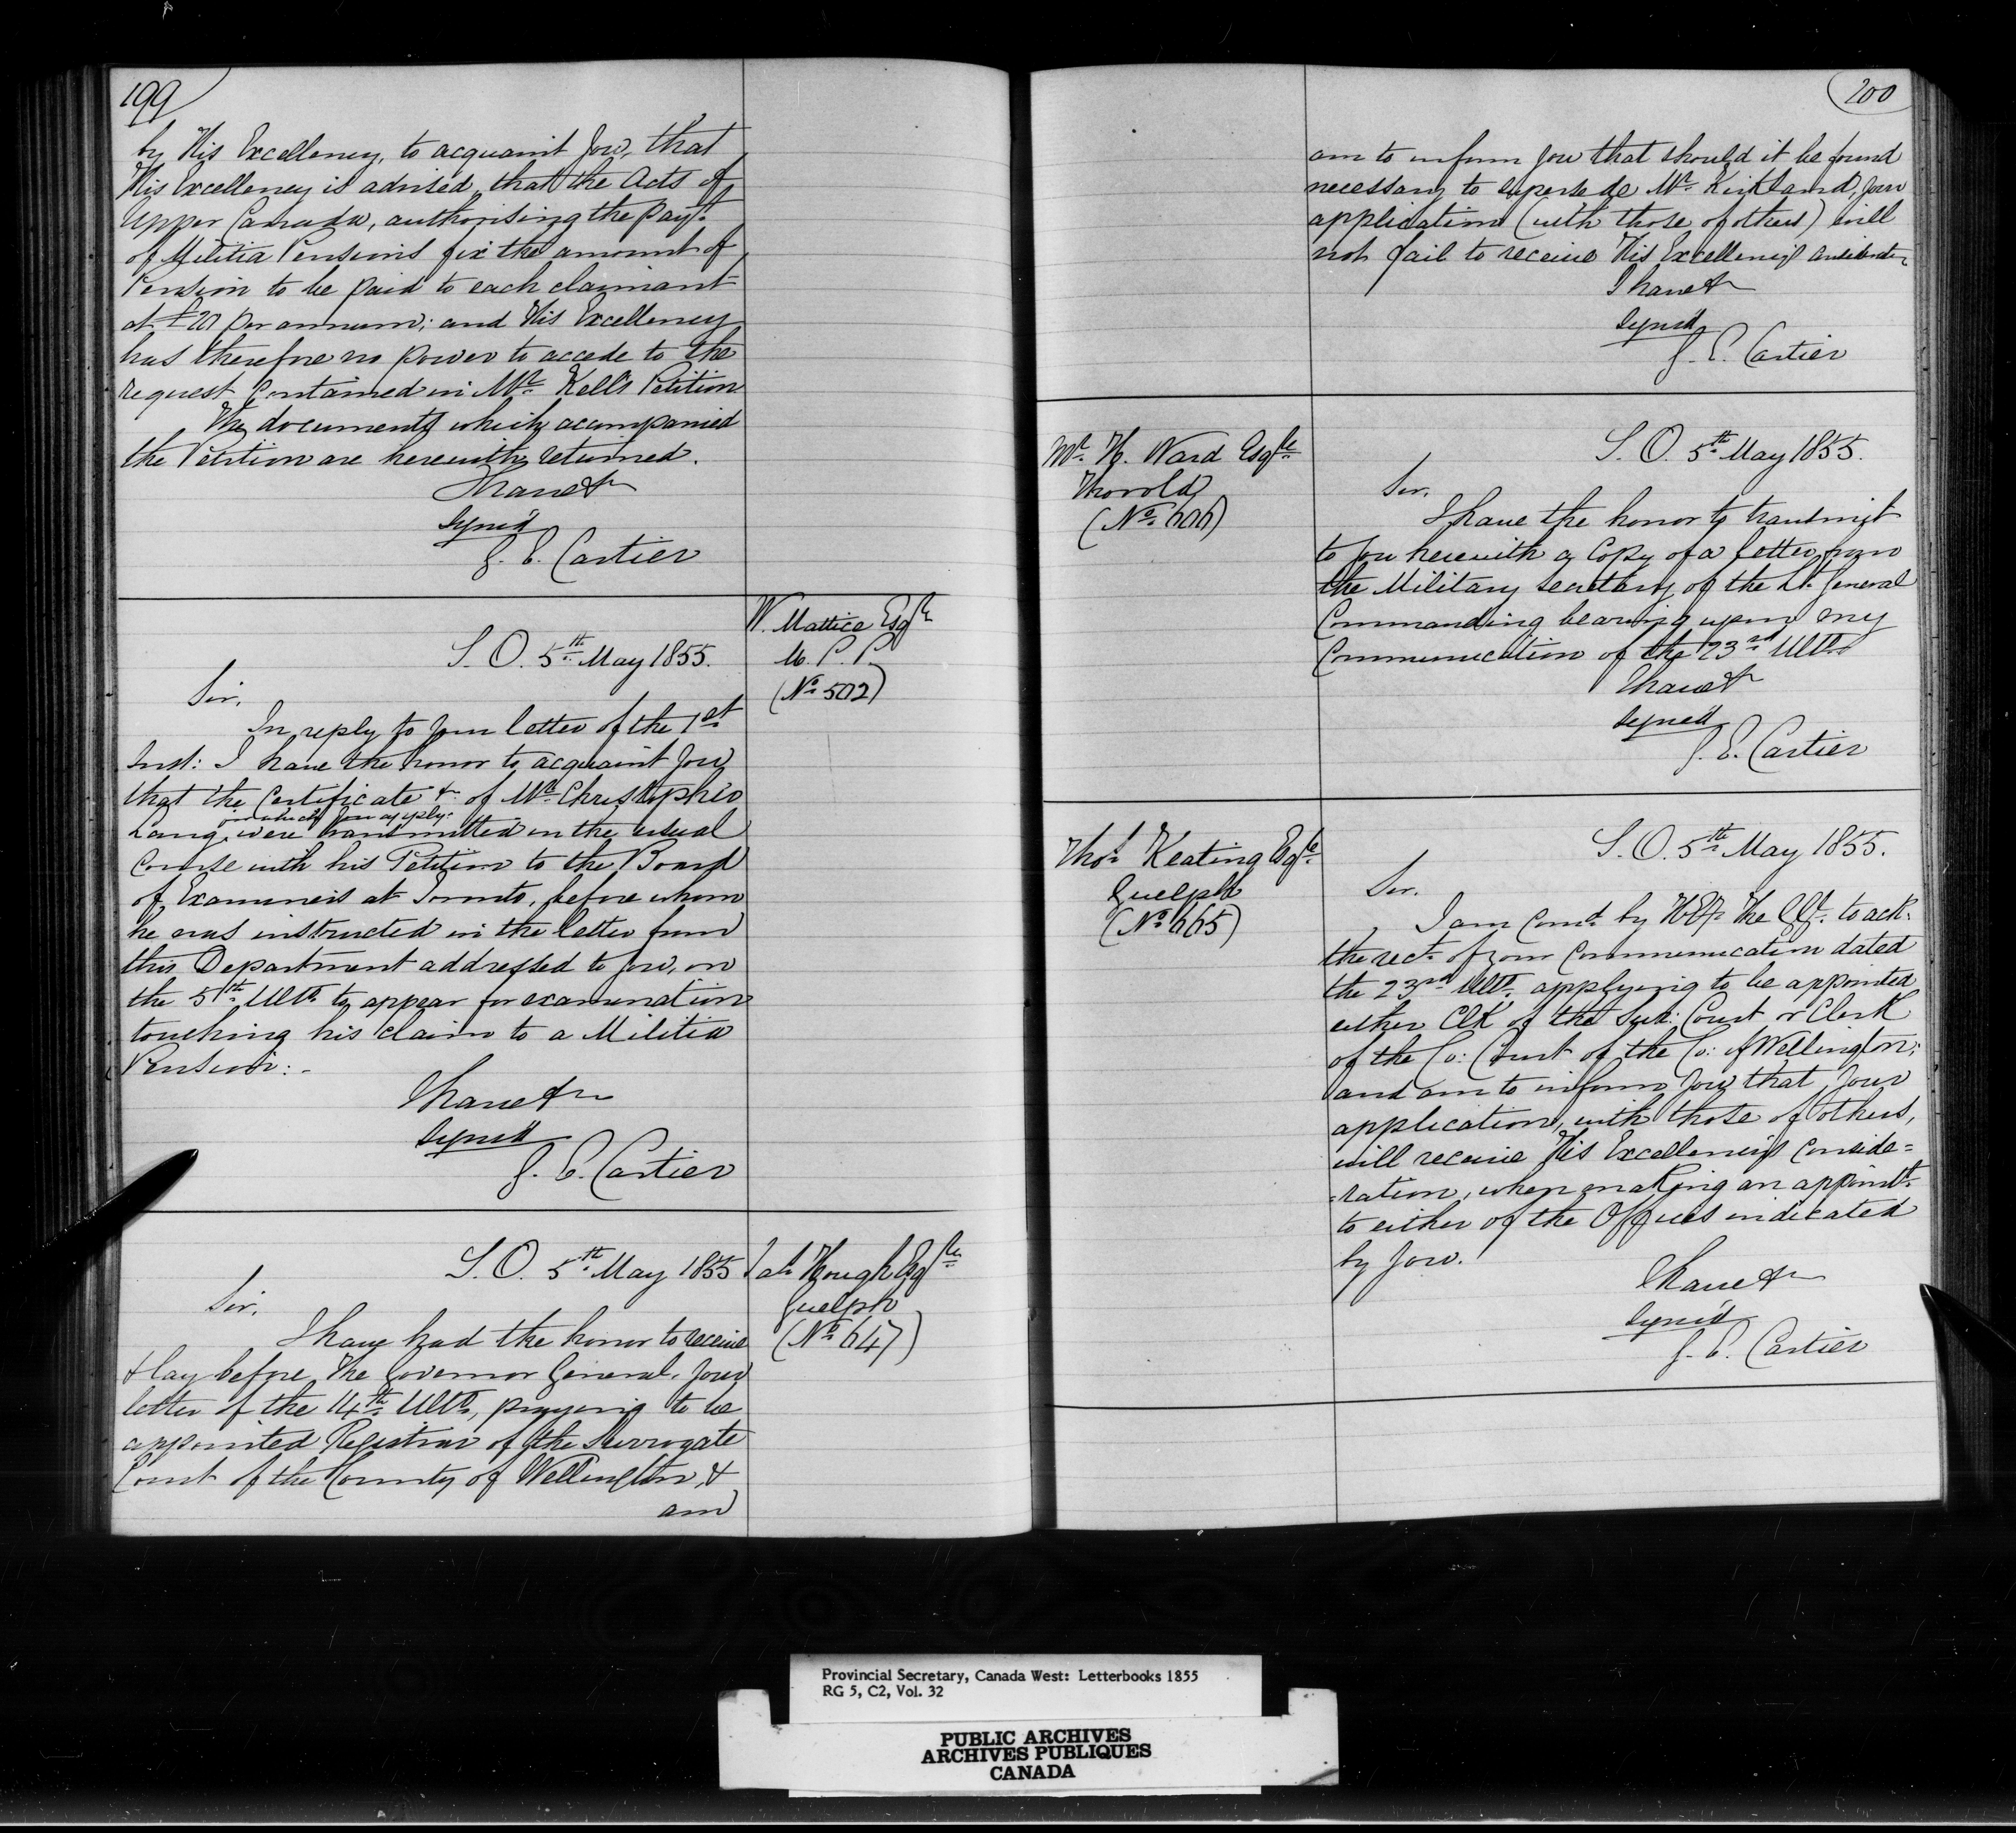 199
by His Excellency, to acquaint you, that
His Excellency is advised, that the Acts of
Upper Canada, authorising the Paymt.
of Militia Pensions fix the amount of
Pension to be paid to each claimant
at £20 per annum; and His Excellency
has therefore no power to accede to the
request contained in Mr. Kell's Petition
The documents which accompanied
the Petition are herewith returned.
I have &
Signed
G. E. Cartier
W. Mattice Esqre
M. P. P.
(No. 502)
S. O. 5th May 1855.
Sir,
In reply to your letter of the 1st
Inst: I have the honor to acquaint you
that the Certificate &c. of Mr. Christopher
for which you apply.
Lang, were transmitted in the usual
course with his Petition to the Board
of Examiners at Toronto, before whom
he was instructed in the letter from
this Department addressed to you, on
the 5th Ulto. to appear for examination
touching his claim to a Militia
Pension: -
I have &c
Signed
G. E. Cartier
Jas. Hough Esqre
Guelph
(No. 647)
S. O. 5th May 1855
Sir,
I have had the honor to receive
& lay before The Governor General, your
letter of the 14th Ulto, praying to be
appointed Registrar of the Surrogate
Court of the County of Wellington, &
am
200
am to inform you that should it be found
necessary to supersede Mr. Kirkland, your
application (with those of others) will
not fail to receive His Excellency's
I have &
Signed
G. E. Cartier
Mr. H. Ward Esqre
Thorold
(No. 606)
S. O. 5th May 1855.
Sir,
I have the honor to transmit
to you herewith a Copy of a letter from
the Military Secretary of the Lt. General
Commanding bearing upon my
Communication of the 23rd Ulto.
I have &
Signed
G. E. Cartier
Thos. Keating Esqre
Guelph
(No. 665)
S. O. 5th May 1855.
Sir,
I am Comd. by H.E. The to ack:
the rect. of your Communication dated
the 23rd Ulto. applying to be appointed
either Clk of the Sur: Court or Clerk
of the Co: Court of the Co: of Wellington;
and am to inform you that your
application, with those of others,
will receive His Excellency's conside=
=ration, when making an appointt.
to either of the Offices indicated
by you.
I have &c
Signed
G. E. Cartier
Provincial Secretary, Canada West: Letterbooks 1855
RG 5, C2, Vol. 32
PUBLIC ARCHIVES
ARCHIVES PUBLIQUES
CANADA